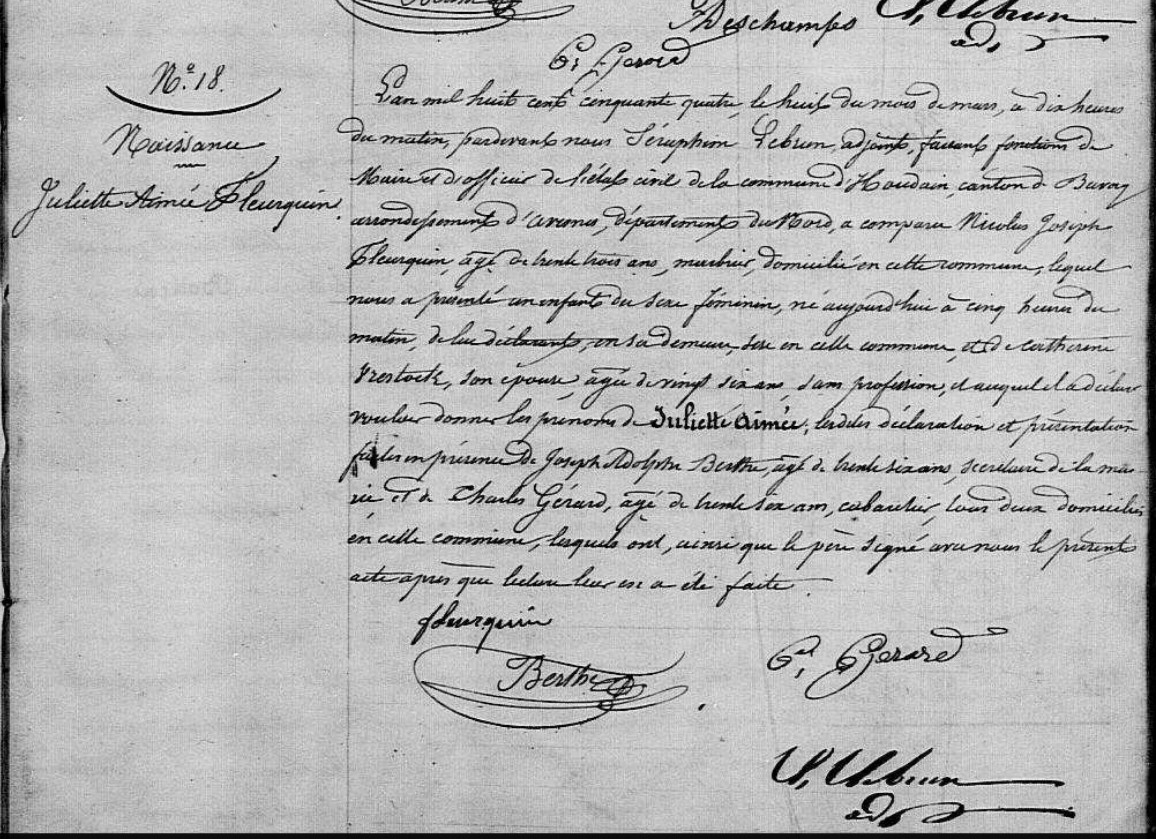 Deschamps
S. Lebrun
adj
Ch. Gerard
N.º 18.
Naissance
Juliette Aimée Fleurquin.
L'an mil huit cent cinquante quatre, le huit du mois de mars, à dix heures
du matin, pardevant nous Séraphim Lebrun, adjoint, faisant fonctions de
Maire et d'officier de l'état civil de la commune d'Houdain, canton de Bavay
arrondissement d'avesnes, département du Nord, a comparu Nicolas Joseph
Fleurquin, âgé de trente trois ans, marbrier, domicilié en cette commune, lequel
nous a présenté un enfant du sexe féminin, né aujourd'hui à cinq heures du
matin, de lui déclarant, en sa demeure, sise en cette commune, et de Catherine
son épouse, âgée de vingt six ans, sans profession, et auquel il a déclaré
vouloir donner les prénoms de Juliette Aimée, lesdites déclaration et présentation
faites en présence de Joseph Adolphe Berthe, âgé de trente six ans, secrétaire de la mai-
rie, et de Charles Gérard, âgé de trente six ans, cabaretier, tous deux domiciliés
en cette commune, lesquels ont, ainsi que le père signé avec nous le présent
acte après que lecture leur en a été faite.
fleurquin
Berthe
Ch. Gerard
S. Lebrun
adj